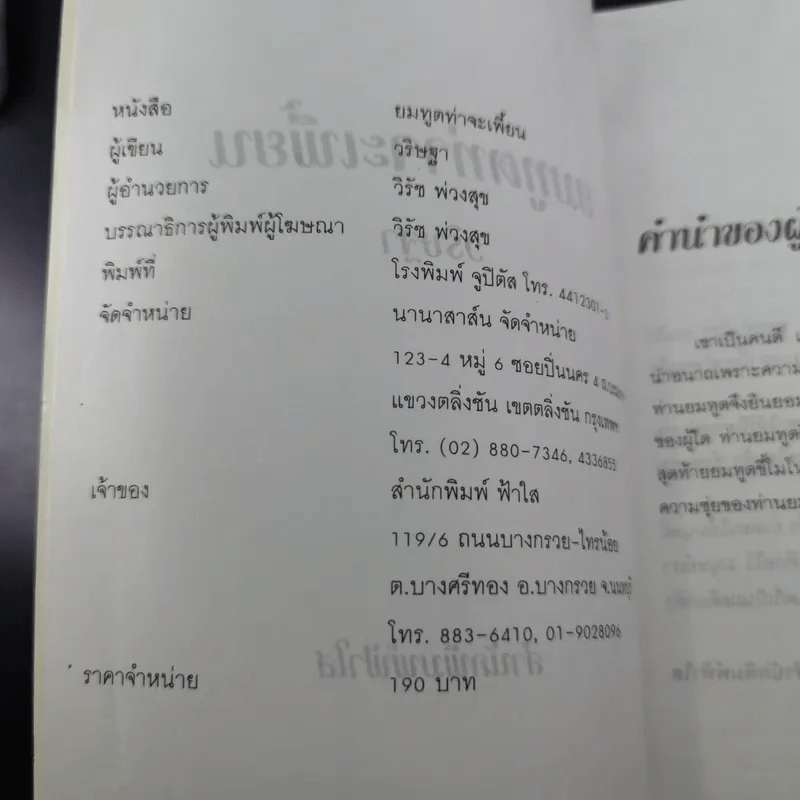 หนังสือ ยมทูตท่าจะเพี้ยน
ผู้เขียน วริษฐา
ผู้อำนวยการ วิรัช พ่วงสุข
บรรณาธิการผู้พิมพ์ผู้โฆษณา วิรัช พ่วงสุข
พิมพ์ที่ โรงพิมพ์ จูปิตัส โทร.
จัดจำหน่าย นานาสาส์น จัดจำหน่าย
123-4 หมู่ 6 ซอยปิ่นนคร 4
แขวงตลิ่งชัน เขตตลิ่งชัน กรุงเทพฯ
โทร. (02) 880-7346, 4336855
เจ้าของ สำนักพิมพ์ ฟ้าใส
119/6 ถนนบางกรวย-ไทรน้อย
ต.บางศรีทอง อ.บางกรวย จ.นนทบุรี
โทร. 883-6410, 01-9028096
ราคาจำหน่าย 190 บาท
คำนำของผู้
เขาเป็นคนดี
น่าอนาถเพราะความ
ท่านยมทูตจึงยินยอม
ของผู้ใด ท่านยมทูต
สุดท้ายยมทูตขี้โมโห
ความซุ่ยของท่านยม